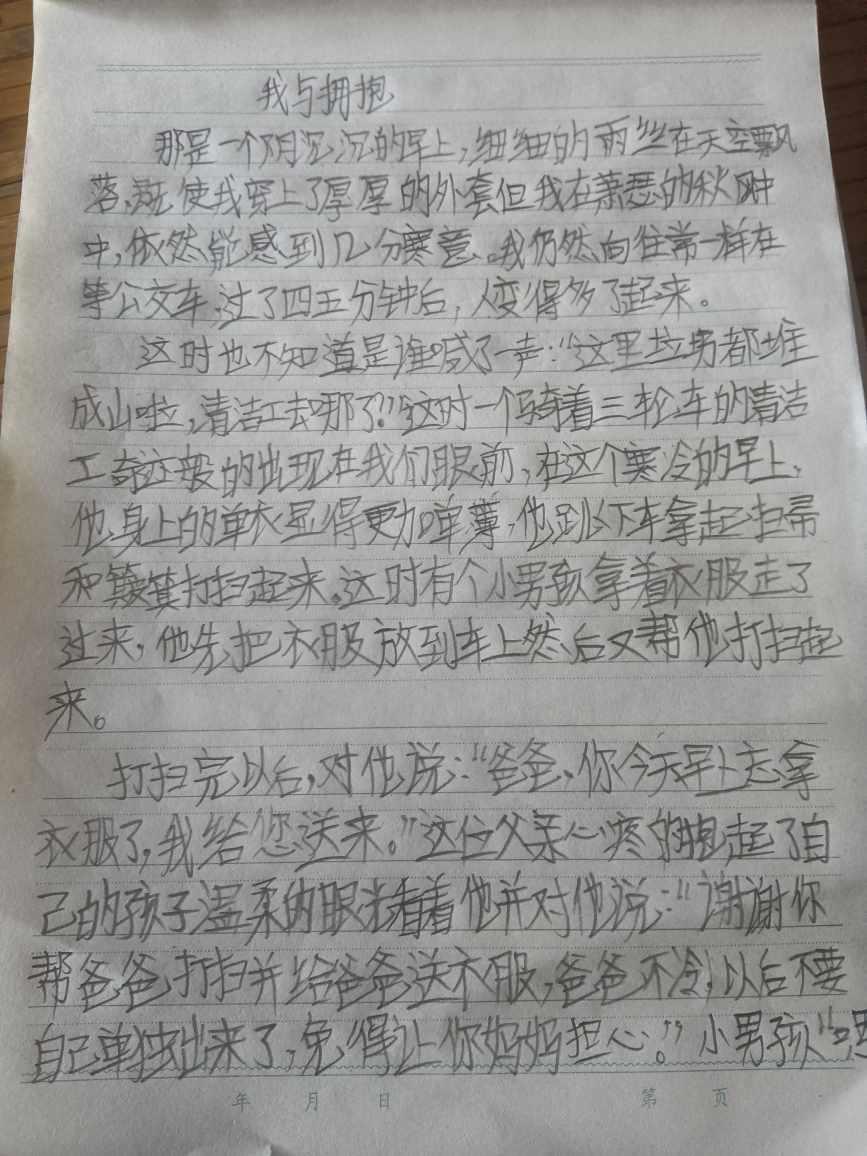 我与拥抱
那是一个阴沉沉的早上，细细的雨丝在天空飘
落，既使我穿上了厚厚的外套但我在萧瑟的秋风中
中，依然能感到几分寒意。我仍然向往常一样在
等公交车，过了四五分钟后，人变得多了起来。
这时也不知道是谁喊了一声：“这里垃圾都堆
成山啦，清洁工去哪了？”这时一个骑着三轮车的清洁
工奇迹般的出现在我们眼前，在这个寒冷的早上，
他身上的单衣显得更加单薄，他跳下车拿起扫帚
和簸箕打扫起来。这时有个小男孩拿着衣服走了
过来，他先把衣服放到车上然后又帮他打扫起
来。
打扫完以后，对他说：“爸爸，你今天早上忘拿
衣服了，我给您送来。”这位父亲心疼的抱起了自
己的孩子温柔的眼光看着他并对他说：“谢谢你
帮爸爸打扫并给爸爸送衣服，爸爸不冷，以后不要
自己单独出来了，免得让你妈妈担心。”小男孩“嗯
年 月 日 第 页